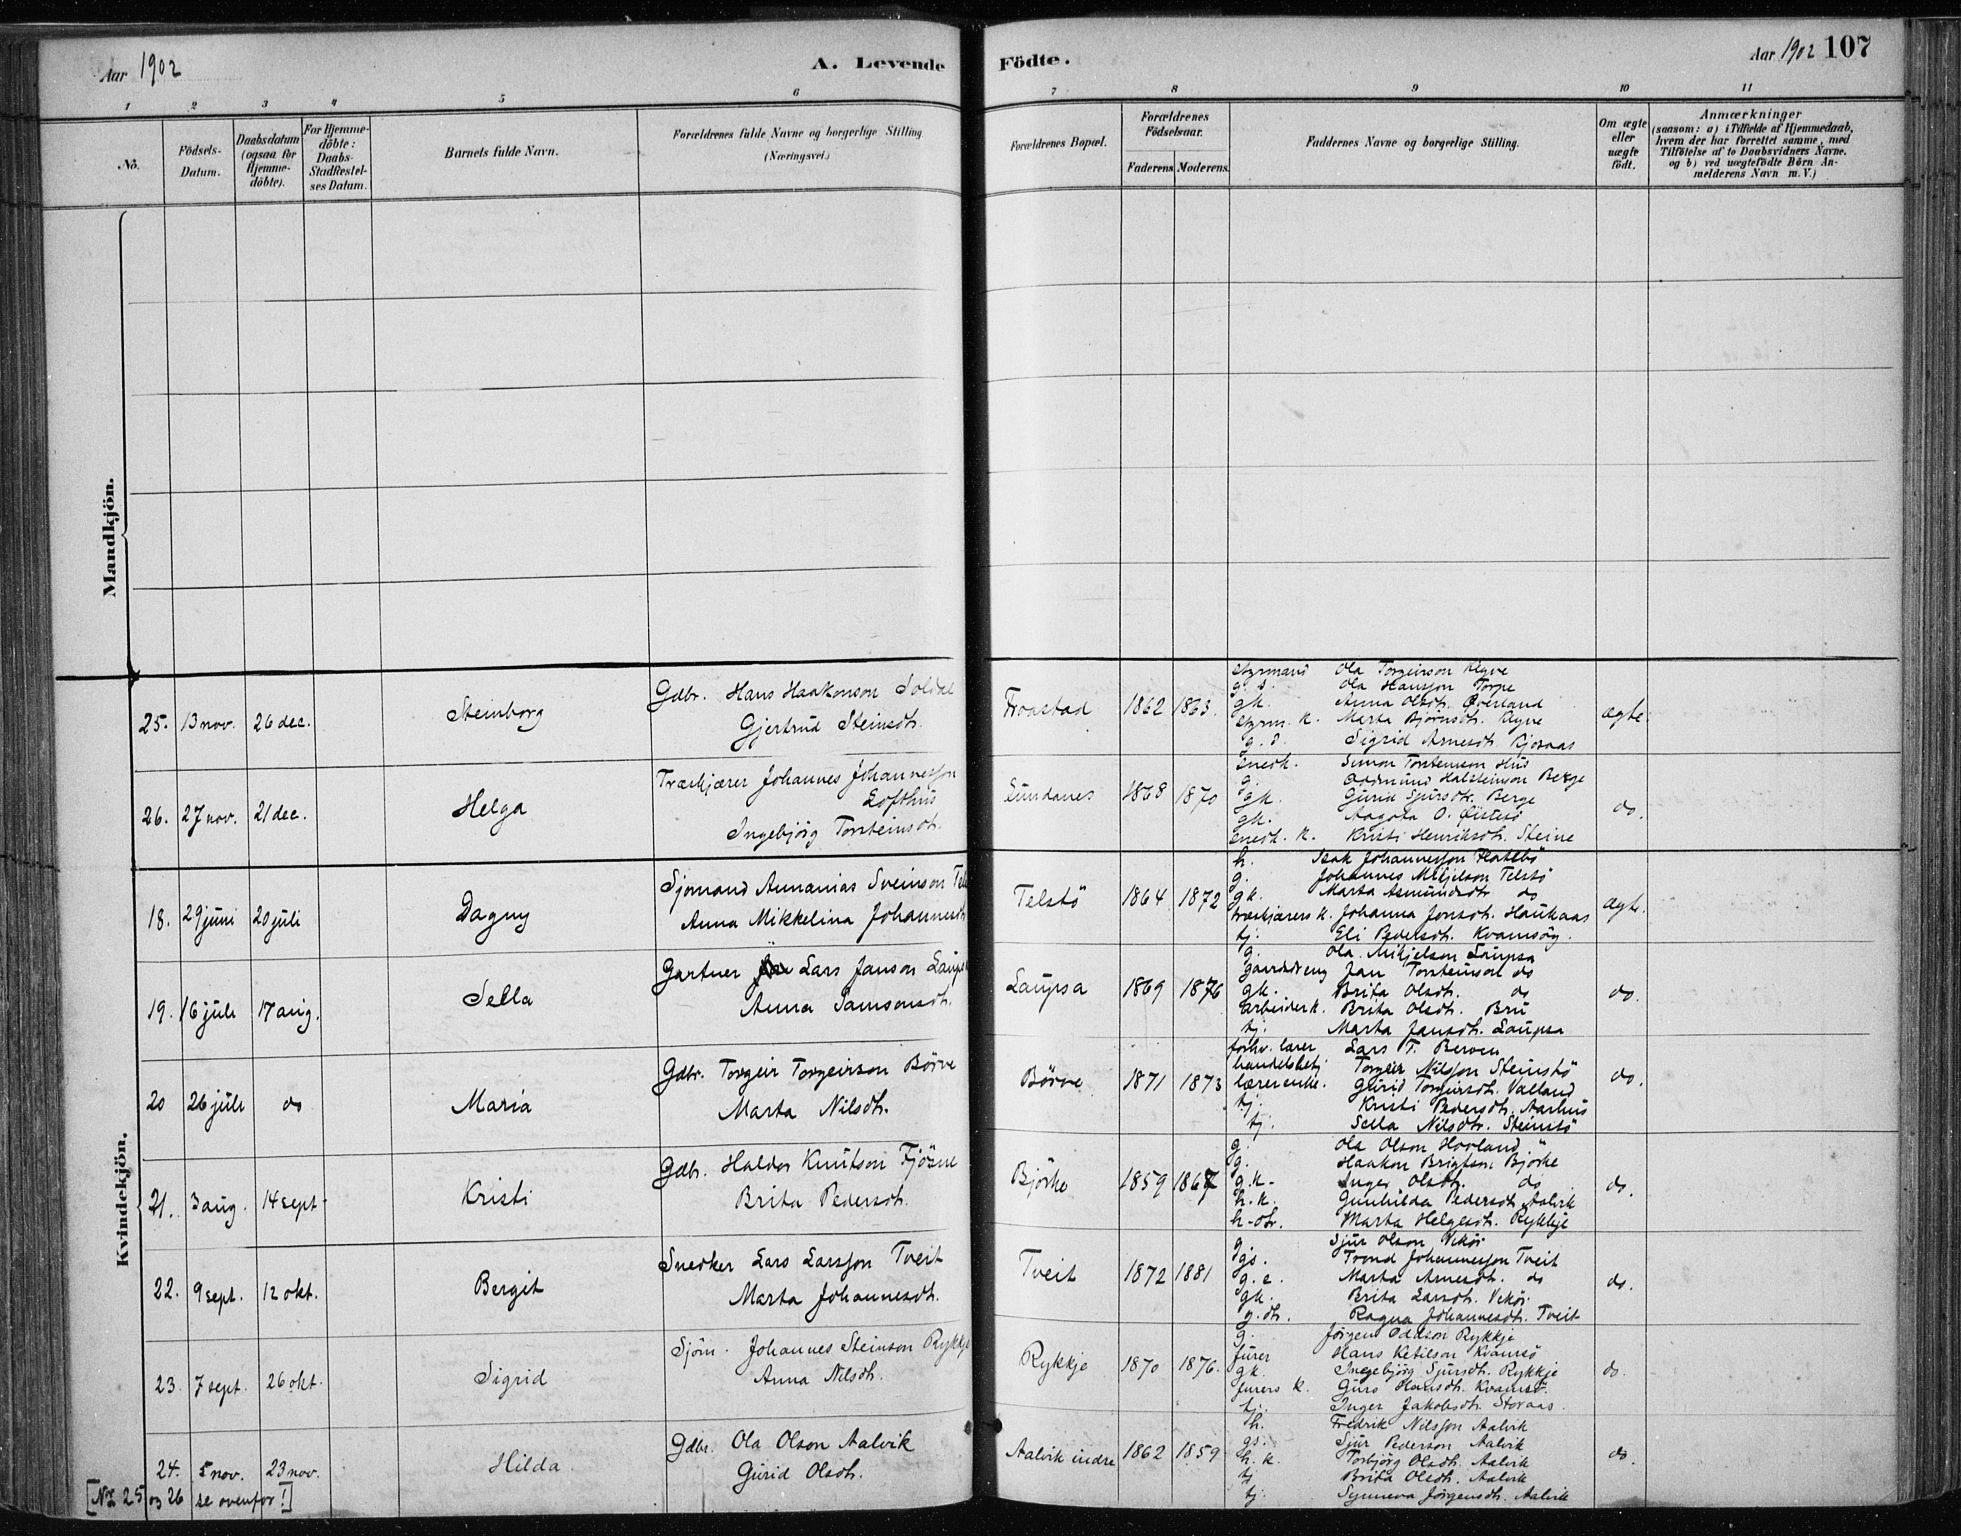 Aar 1902
A. Levende Födte.
Aar 1902 107
1 2 3 4 5 6 7 8 9 10 11
No.
Födsels-Datum.
Daabsdatum (ogsaa för Hjemme-döbte).
For Hjemme-döbte: Daabs-Stadfæstel-ses Datum.
Barnets fulde Navn.
Forældrenes fulde Navne og borgerlige Stilling (Næringsvei.)
Forældrenes Bopæl.
Forældrenes Födselsaar.
Faderens Moderens.
Faddernes Navne og borgerlige Stilling.
Om ægte eller uægte födt.
Anmærkninger
(saasom: a) i Tilfælde af Hjemmedaab,
hvem der har forrettet samme, med
Tilföielse af to Daabsvidners Navne.
og b) ved uægtefödte Börn An-
melderens Navn m. V.)
Mandkjön.
Kvindekjön.
25. 13 nov. 26 dec. Steinborg
Gdbr. Hans Haakonson Soldal
Gjertrud Steinsdtr.
1862 1863.
styrmand Ola Torgeirson
g. s. Ola Hansson Torpe
gk. Anna Olsdtr.
styrm. k. Marta Bjørnsdtr.
g. d. Sigrid Arnesdtr.
ægte
26. 27 nov. 21 dec. Helga
Træskjærer Johannes Johannesson
Lofthus
Ingebjörg Torsteinsdtr.
Sundanes 1868 1870
snedk. Simon Torsteinson Hus
g. Halsteinson Berge
gk. Gurid Sjursdtr. Berge
gk. Aagota O. Östesö
snedk. k. Kristi Henriksdtr. Steine
do.
18. 29 juni 20 juli Dagny
Sjömand Annanias Sveinson
Anna Mikkelina Johannesdtr
Telstö 1864 1872
h. Isak Johannesson Flatebö
g. Johannes Mikjelson Telstö
gk. Marta Asmundsdtr do
træskjærers k. Johanna Jonsdtr. Haukaas
tj. Eli Pedersdtr. Kvamsöy.
ægte.
19. 16 juli 17 aug. Sella
Gartner Lars Janson
Anna Samsonsdtr.
Laupsa 1869 1876
g. Ola Mikjelson Laupsa
gaardsdreng Jan Torsteinson do
gk. Brita Olsdtr. do
arbeiderk. Brita Olsdtr. Bru
tj. Marta Jansdtr. Laupsa
do.
20 26 juli do Maria
Gdbr. Torgeir Torgeirson Börve
Marta Nilsdtr.
Börve 1871 1873
forhv. lærer Lars T. Berven
handelsbetj Torgeir Nilsson Steinstö
lærerenke. Gurid Torgeirsdtr. Valland
tj. Kristi Pedersdtr. Aarhus
tj. Sella Nilsdtr. Steinstö
do.
21. 3 aug. 14 sept. Kristi
Gdbr. Haldor Knutson Fjösne
Brita Pedersdtr.
Björke 1859 1867
g. Ola Olson Hovland
g. Haakon Brigtson Björke
g.k. Inger Olsdtr. do
h.k. Gunhilda Pedersdtr. Aalvik
h-dtr. Marta Helgesdtr. Rykkje
do.
22. 9 sept. 12 okt. Bergit
Snedker Lars Larsson Tveit
Marta Johannesdtr.
Tveit 1872 1881
g. Sjur Olson Vikör
gs. Trond Johannesson Tveit
g.e. Marta Arnesdtr. do
gk. Brita Larsdtr. Vikör
g.dtr. Ragna Johannesdtr. Tveit
do.
23. 7 sept. 26 okt. Sigrid
Sjöm. Johannes Steinson Rykkje
Anna Nilsdtr.
Rykkje 1870 1876.
g. Jörgen Oddson Rykkje
furer Hans Ketilson Kvamsö
gk. Ingebjörg Sjursdtr. Rykkje
furers k. Guro Hansdtr. Kvamsö.
tj. Inger Jakobsdtr. Storaas.
do.
24. 5 nov. 23 nov. Hilda
Gdbr. Ola Olson Aalvik
Gurid Olsdtr.
Aalvik indre 1862 1859
h. Fredrik Nilsson Aalvik
gs. Sjur Pederson Aalvik
h.k. Torbjörg Olsdtr. Aalvik
tj Brita Olsdtr. Aalvik
tj. Synneva Jörgensdtr. Aalvik
do.
[No 25 og 26 se ovenfor!]